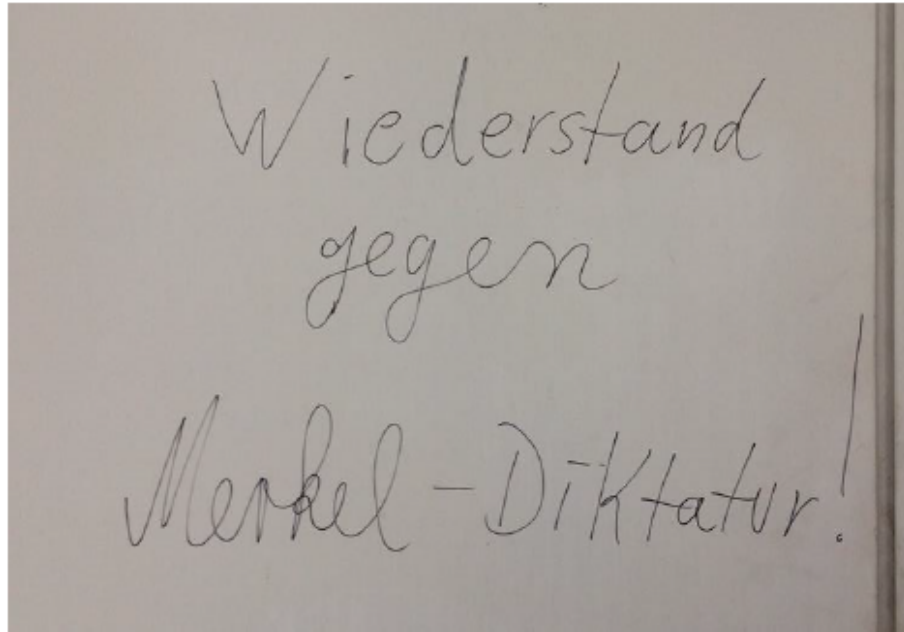 Wiederstand
gegen
Merkel-Diktatur!